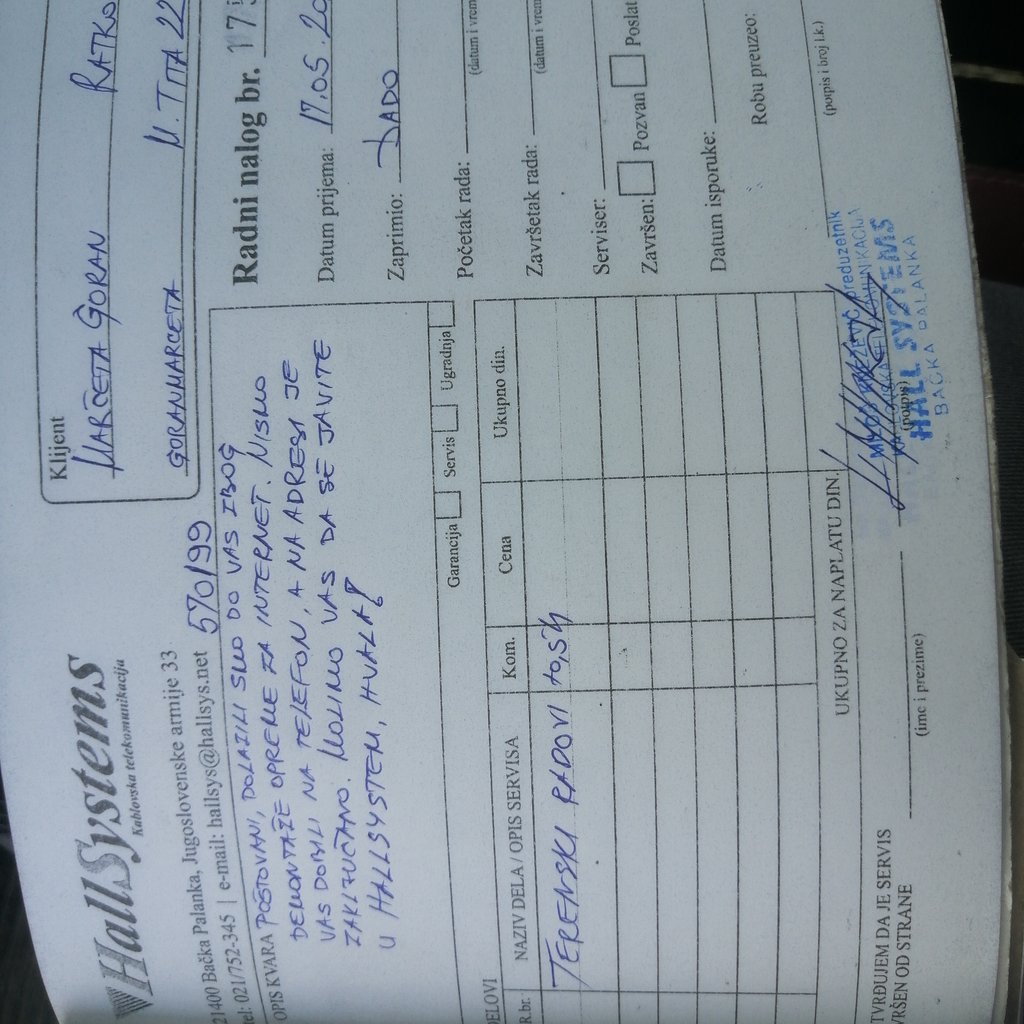 HallSystems
Kablovska telekomunikacija
21400 Bačka Palanka, Jugoslovenske armije 33
tel: 021/752-345 | e-mail: hallsys@hallsys.net
570/99
Klijent
MARČETA GORAN RATKO
GORANMARCETA M. TITA 22
OPIS KVARA POŠTOVANI, DOLAZILI SMO DO VAS ZBOG
DEMONTAŽE OPREME ZA INTERNET. NISMO
VAS DOBILI NA TELEFON, A NA ADRESI JE
ZAKLJUČANO. MOLIMO VAS DA SE JAVITE
U HALLSYSTEM, HVALA!
Garancija Servis Ugradnja
Radni nalog br. 175
Datum prijema: 17.05.20
Zaprimio: DADO
Početak rada:
(datum i vrem
Završetak rada:
(datum i vrem
Serviser:
Završen: Pozvan Poslat
Datum isporuke:
Robu preuzeo:
(potpis i broj l.k.)
DELOVI
R.br. NAZIV DELA / OPIS SERVISA Kom. Cena Ukupno din.
TERENSKI RADOVI
UKUPNO ZA NAPLATU DIN.
TVRĐUJEM DA JE SERVIS
VRŠEN OD STRANE
(ime i prezime)
(potpis)
preduzetnik
HALL SYSTEMS
BAČKA PALANKA